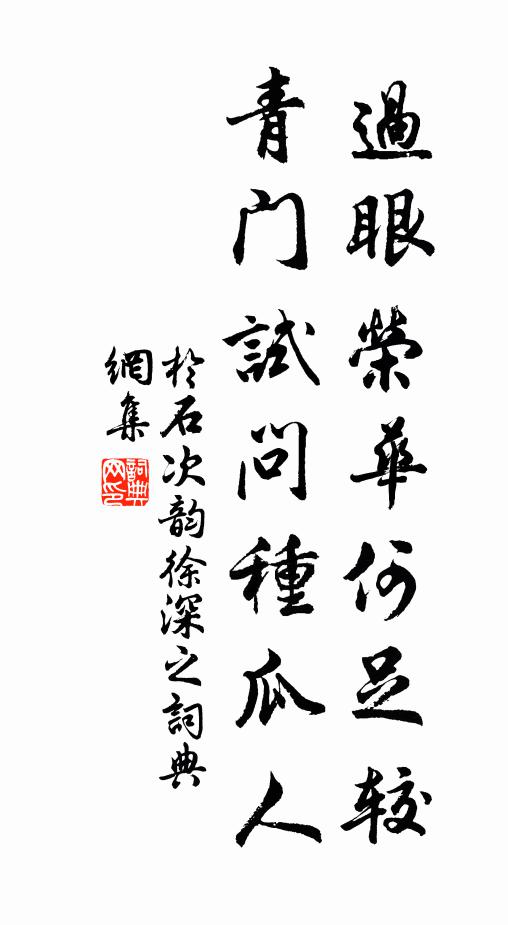 過眼榮華何足较
青门試问種瓜人
於石次韵徐深之詞典
網集
詞典
网印